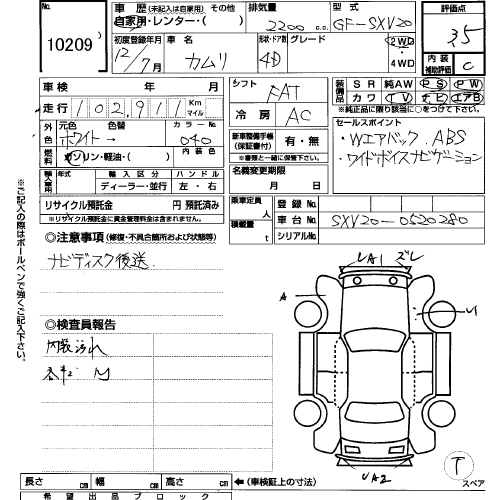 No.
10209
車歴(未記入は自家用) その他
自家用・レンター・( )
排気量
2200 c.c.
型式
GF-SXV20
評価点
3.5
初度登録年月
12/7月
車名
カムリ
形状・ドア数
4D
グレード
2WD
・
4WD
内装
補助評価
C
車検 年 月
走行 102,911 Km
マイル
シフト
FAT
装備品
SR 純AW PS PW
カワ TV ナビ エアB
※純正品に限り該当に○をつけて下さい。
外色
元色 色替 カラーNo.
ホワイト → 040
冷房
AC
セールスポイント
・Wエアバック . ABS
・ワイドボイスナビゲーション
燃料
ガソリン・軽油・( )
内装色
新車整備手帳
(保証書付)
有・無
※書類と一緒に保管下さい。
輸入車用
年式 輸入区分 ハンドル
ディーラー・並行 左・右
名義変更期限
月 日
リサイクル預託金 円 預託済
※リサイクル預託金に資金管理料金は含まれません。
乗車定員
人
積載量
t
登録No.
車台No. SXV20-0520280
シリアルNo.
◎注意事項(修復・不具合箇所および状態等)
ナビディスク後送.
※ご記入の際はボールペンで強くご記入下さい。
UA1 ズレ
A
U
◎検査員報告
内装汚れ
各キズ M
UA2
T
スペア
長さ cm 幅 cm 高さ cm ←(車検証上の寸法)
希望出品ブロック